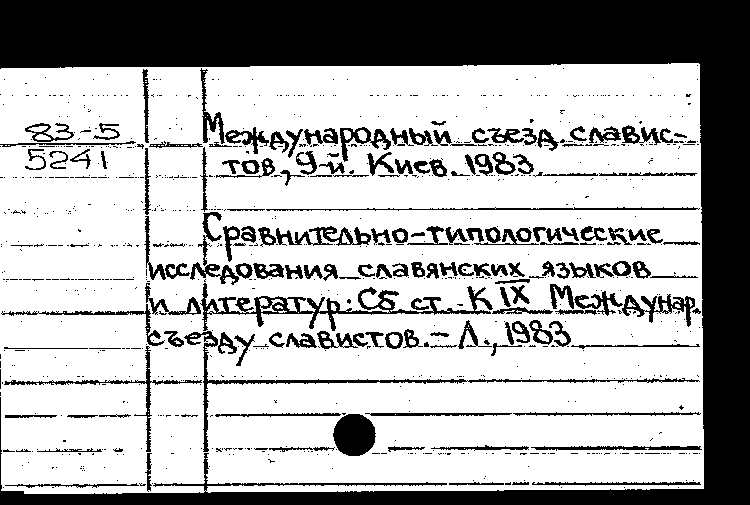 83-5
5241
Международный съезд славис-
тов, 9-й. Киев. 1983.
Сравнительно-типологические
исследования славянских языков
и литератур: Сб. ст. К IX Междунар.
съезду славистов. – Л., 1983